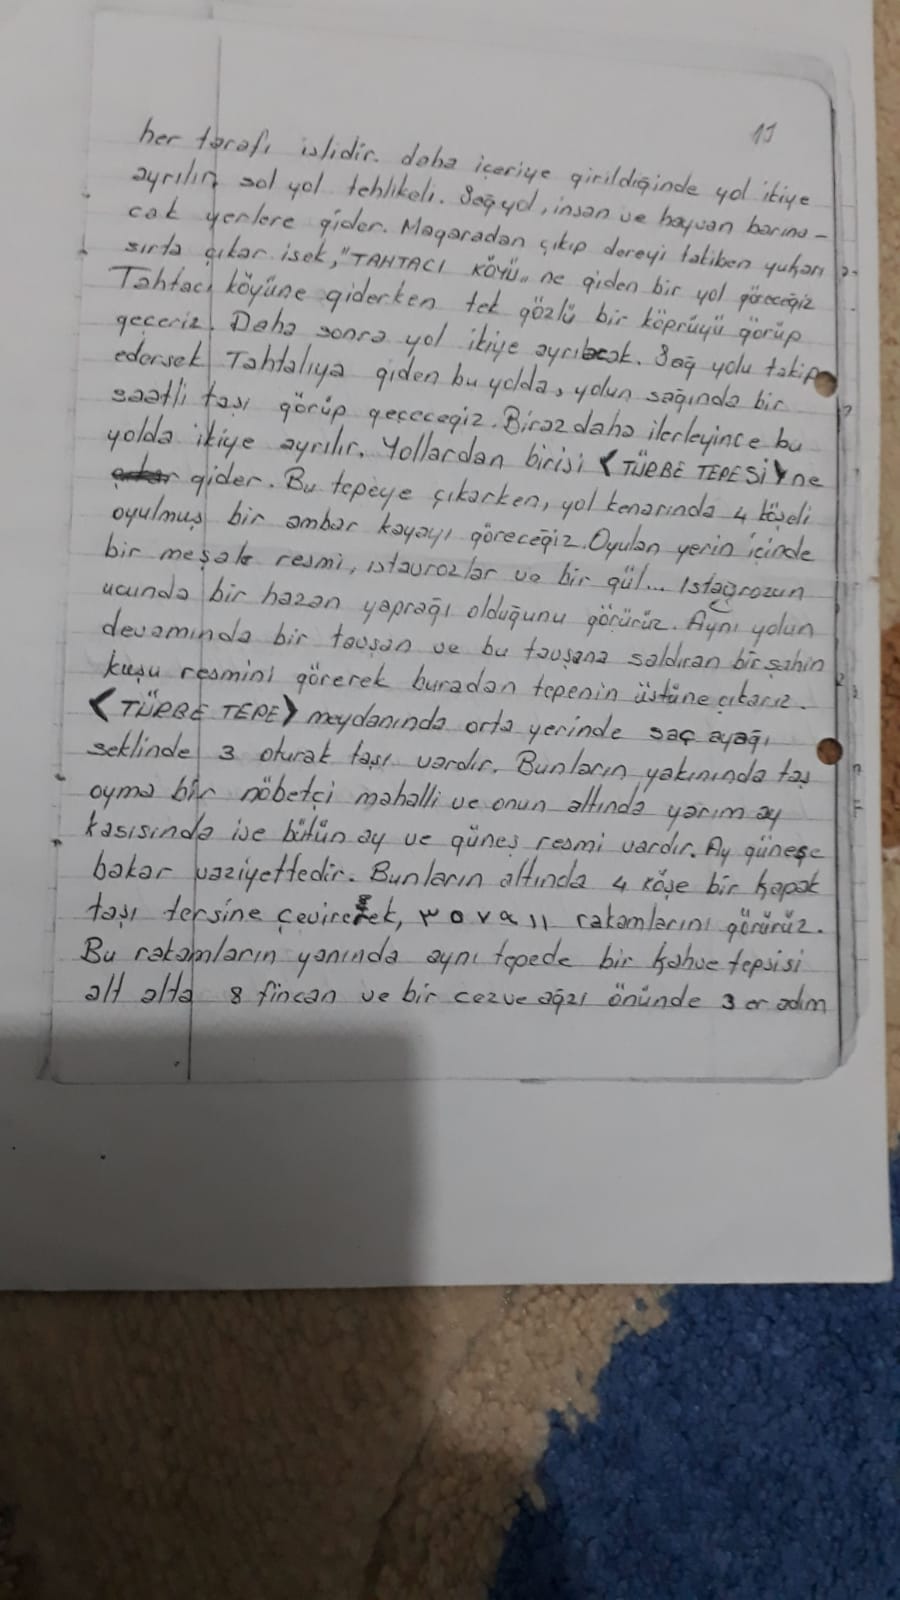 15
her tarafı islidir. daha içeriye girildiğinde yol ikiye
ayrılır, sol yol tehlikeli. Sağ yol, insan ve hayvan barına-
cak yerlere gider. Mağaradan çıkıp dereyi takiben yukarı
sırta çıkar isek, "TAHTACI KÖYÜ„ ne giden bir yol göreceğiz
Tahtacı köyüne giderken tek gözlü bir köprüyü görüp
geçeriz. Daha sonra yol ikiye ayrılacak. Sağ yolu takip
edersek Tahtalıya giden bu yolda, yolun sağında bir
saatli taşı görüp geçeceğiz. Biraz daha ilerleyince bu
yolda ikiye ayrılır. Yollardan birisi < TÜRBE TEPESİ > ne
gider. Bu tepeye çıkarken, yol kenarında 4 köşeli
oyulmuş bir ambar kayayı göreceğiz. Oyulan yerin içinde
bir meşale resmi, istavrozlar ve bir gül... Istağrozun
ucunda bir hazan yaprağı olduğunu görürüz. Aynı yolun
devamında bir tavşan ve bu tavşana saldıran bir şahin
kuşu resmini görerek buradan tepenin üstüne çıkarız.
< TÜRBE TEPE > meydanında orta yerinde saç ayağı
seklinde 3 oturak taşı vardır. Bunların yakınında taş
oyma bir nöbetçi mahalli ve onun altında yarım ay
kasısında ise bütün ay ve güneş resmi vardır. Ay güneşe
bakar vaziyettedir. Bunların altında 4 köşe bir kapak
taşı tersine çevirerek, ٣ ٥ ٧ ٩ ١١ rakamlarını görürüz.
Bu rakamların yanında aynı tepede bir kahve tepsisi
alt alta 8 fincan ve bir cezve ağzı önünde 3 er adım